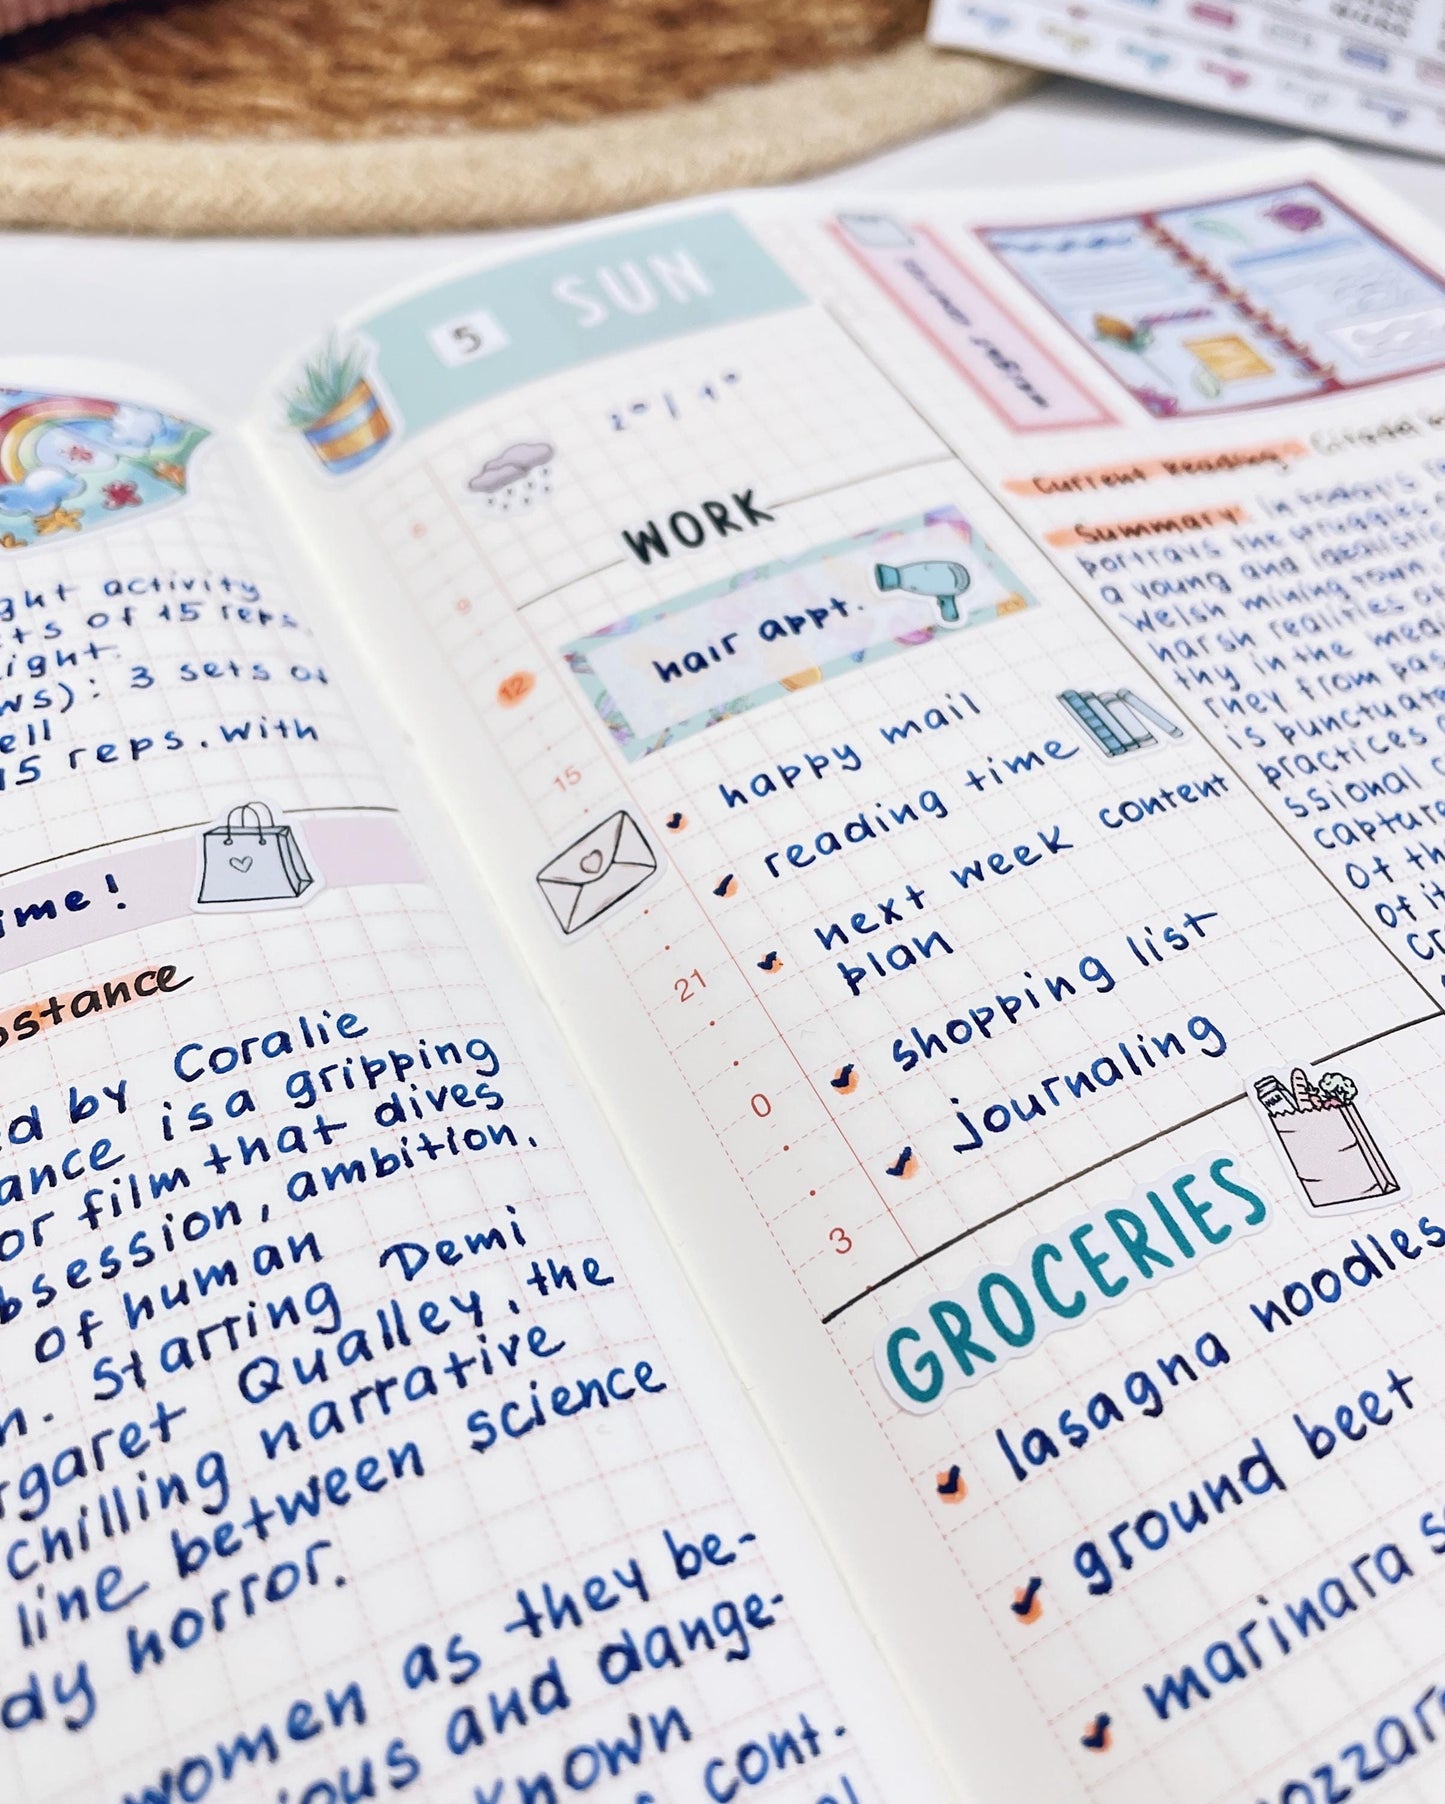 ght activity
ts of 15 reps.
ight.
ws): 3 sets of
ell
15 reps. with
ime!
bstance
ed by Coralie
ance is a gripping
or film that dives
bsession, ambition,
of human
n. Starring Demi
rgaret Qualley, the
chilling narrative
line between science
dy horror.
women as they be-
ious and dange-
known
cont.
5 SUN
WORK
hair appt.
12
15
21
0
3
happy mail
reading time
next week content
plan
shopping list
journaling
GROCERIES
lasagna noodles
ground beet
marinara s
ozzar
Current Reading: Citadel
Summary: In today's
portrays the struggles
a young and idealistic
Welsh mining town.
harsh realities
thy in the medi
rney from pas
is punctuate
practices
ssional
capture
of th
of it